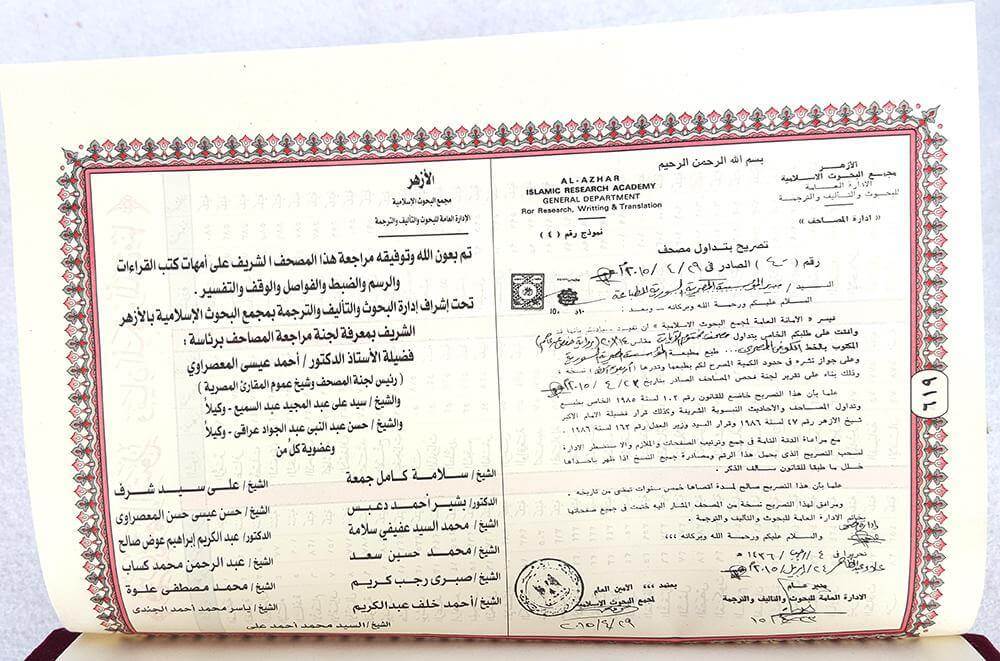 بسم الله الرحمن الرحيم
الأزهر
مجمع البحوث الاسلامية
الادارة العامة
للبحوث والتأليف والترجمة
« ادارة المصاحف »
AL-AZHAR
ISLAMIC RESEARCH ACADEMY
GENERAL DEPARTMENT
Ror Research, Writting & Translation
نموذج رقم ( ٤ )
تصريح بتداول مصحف
رقم ( ٤٠ ) الصادر فى ٢٩ / ٤ / ٢٠١٥
السيد /
السلام عليكم ورحمة الله وبركاته – وبعد :
يسر « الأمانة العامة لمجمع البحوث الاسلامية » ان تفيد
وافقت على طلبكم الخاص بتداول مصحف
المكتوب بالخط طبع بمطبعة
وعلى جواز نشره فى حدود الكمية المصرح لكم بطبعها وقدرها نسخة ،
وذلك بناء على تقرير لجنة فحص المصاحف الصادر بتاريخ ٢٣ / ٤ / ٢٠١٥
علما بأن هذا التصريح خاضع للقانون رقم ١٠٢ لسنة ١٩٨٥ الخاص بطبع
وتداول المصاحف والاحاديث النبوية الشريفة وكذلك قرار فضيلة الامام الاكبر
شيخ الازهر رقم ٤٧ لسنة ١٩٨٦ وقرار السيد وزير العدل رقم ١٦٣ لسنة ١٩٨٦ .
مع مراعاة الدقة التامة فى جمع وترتيب الصفحات والملازم والا ستضطر الادارة
لسحب التصريح الذى يحمل هذا الرقم ومصادرة جميع النسخ اذا ظهر باحداها
خلل ما طبقا للقانون سالف الذكر .
علما بأن هذا التصريح صالح لمدة اقصاها خمس سنوات تمضى من تاريخه .
ومرافق لهذا التصريح نسخة من المصحف المشار اليه ختمت فى جميع صفحاتها
بخاتم الادارة العامة للبحوث والتأليف والترجمة .
والسلام عليكم ورحمة الله وبركاته ،،،
تحريرا فى ٤ / رجب / ١٤٣٦ هـ
٢٠١٥
مدير عام
الادارة العامة للبحوث والتأليف والترجمة
يعتمد ،،، الأمين العام
لمجمع البحوث الاسلامية
٢٠١٥/٤/٢٩
الأزهر
مجمع البحوث الإسلامية
الإدارة العامة للبحوث والتأليف والترجمة
تم بعون الله وتوفيقه مراجعة هذا المصحف الشريف على أمهات كتب القراءات
والرسم والضبط والفواصل والوقف والتفسير .
تحت إشراف إدارة البحوث والتأليف والترجمة بمجمع البحوث الإسلامية بالأزهر
الشريف بمعرفة لجنة مراجعة المصاحف برئاسة :
فضيلة الأستاذ الدكتور / أحمد عيسى المعصراوي
( رئيس لجنة المصحف وشيخ عموم المقارئ المصرية )
والشيخ / سيد على عبد المجيد عبد السميع - وكيلاً
والشيخ / حسن عبد النبى عبد الجواد عراقى - وكيلاً
وعضوية كل من
الشيخ / سلامة كامل جمعة الشيخ / على سيد شرف
الدكتور / بشير أحمد دعبس الشيخ / حسن عيسى حسن المعصراوى
الشيخ / محمد السيد عفيفي سلامة الدكتور / عبد الكريم إبراهيم عوض صالح
الشيخ / محمد حسين سعد الشيخ / عبد الرحمن محمد كساب
الشيخ / صبرى رجب كريم الشيخ / محمد مصطفى علوة
الشيخ / أحمد خلف عبد الكريم الشيخ / ياسر محمد أحمد الجندى
الشيخ / السيد محمد أحمد على
٦١٩